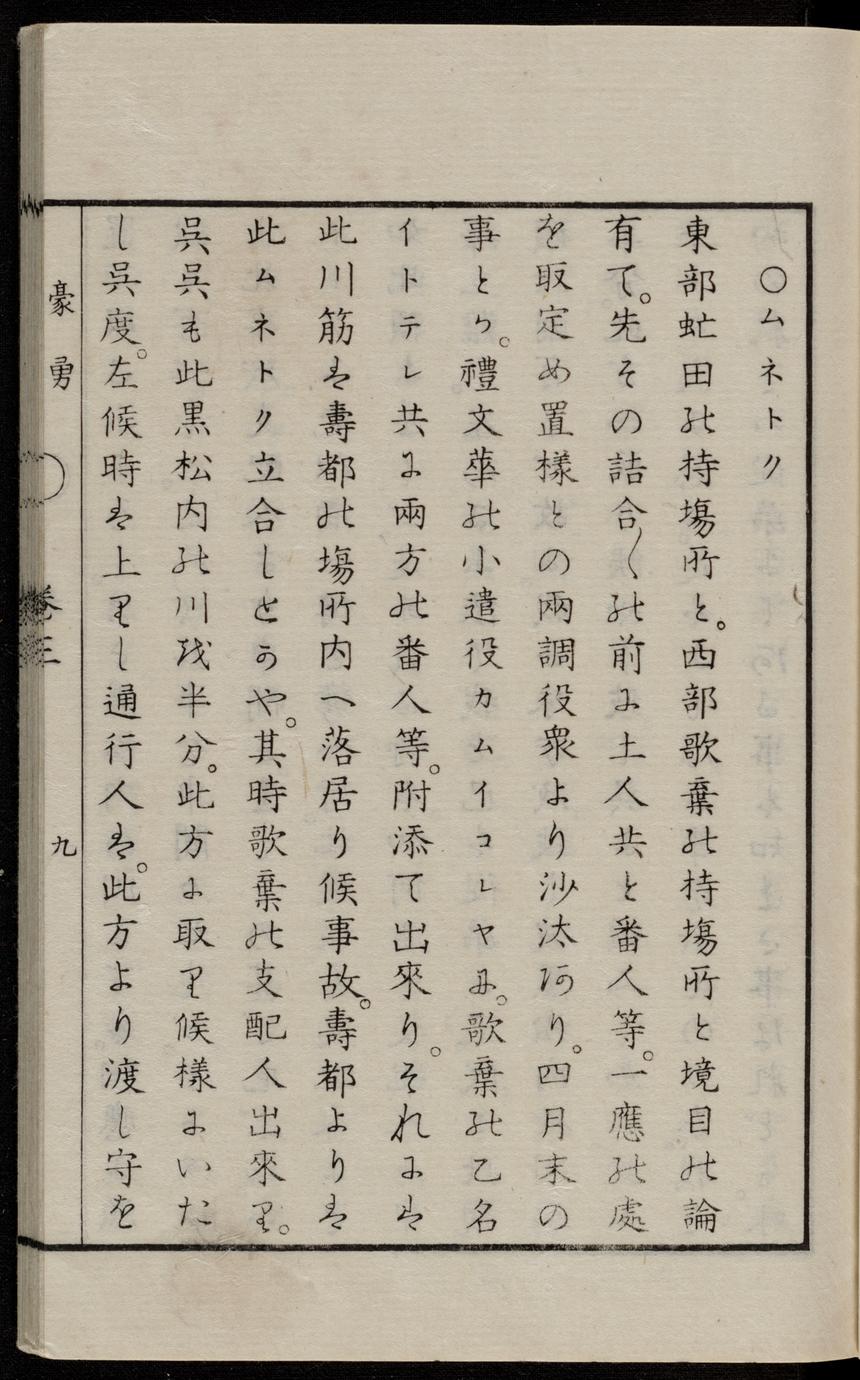 〇ムネトク
東部虻田の持塲所と。西部歌棄の持塲所と境目の論
有て。先その詰合〱の前に土人共と番人等。一應の處
を取定め置樣との兩調役衆より沙汰有り。四月末の
事とか。禮文華の小遣役カムイコレヤに。歌棄の乙名
イトテレ共に兩方の番人等。附添て出來り。それには
此川筋は壽都の塲所内へ落居り候事故。壽都よりは
此ムネトク立合しとかや。其時歌棄の支配人出來り。
呉呉も此黒松内の川を半分。此方に取り候樣にいた
し呉度。左候時は上りし通行人は。此方より渡し守を
豪勇
卷三
九